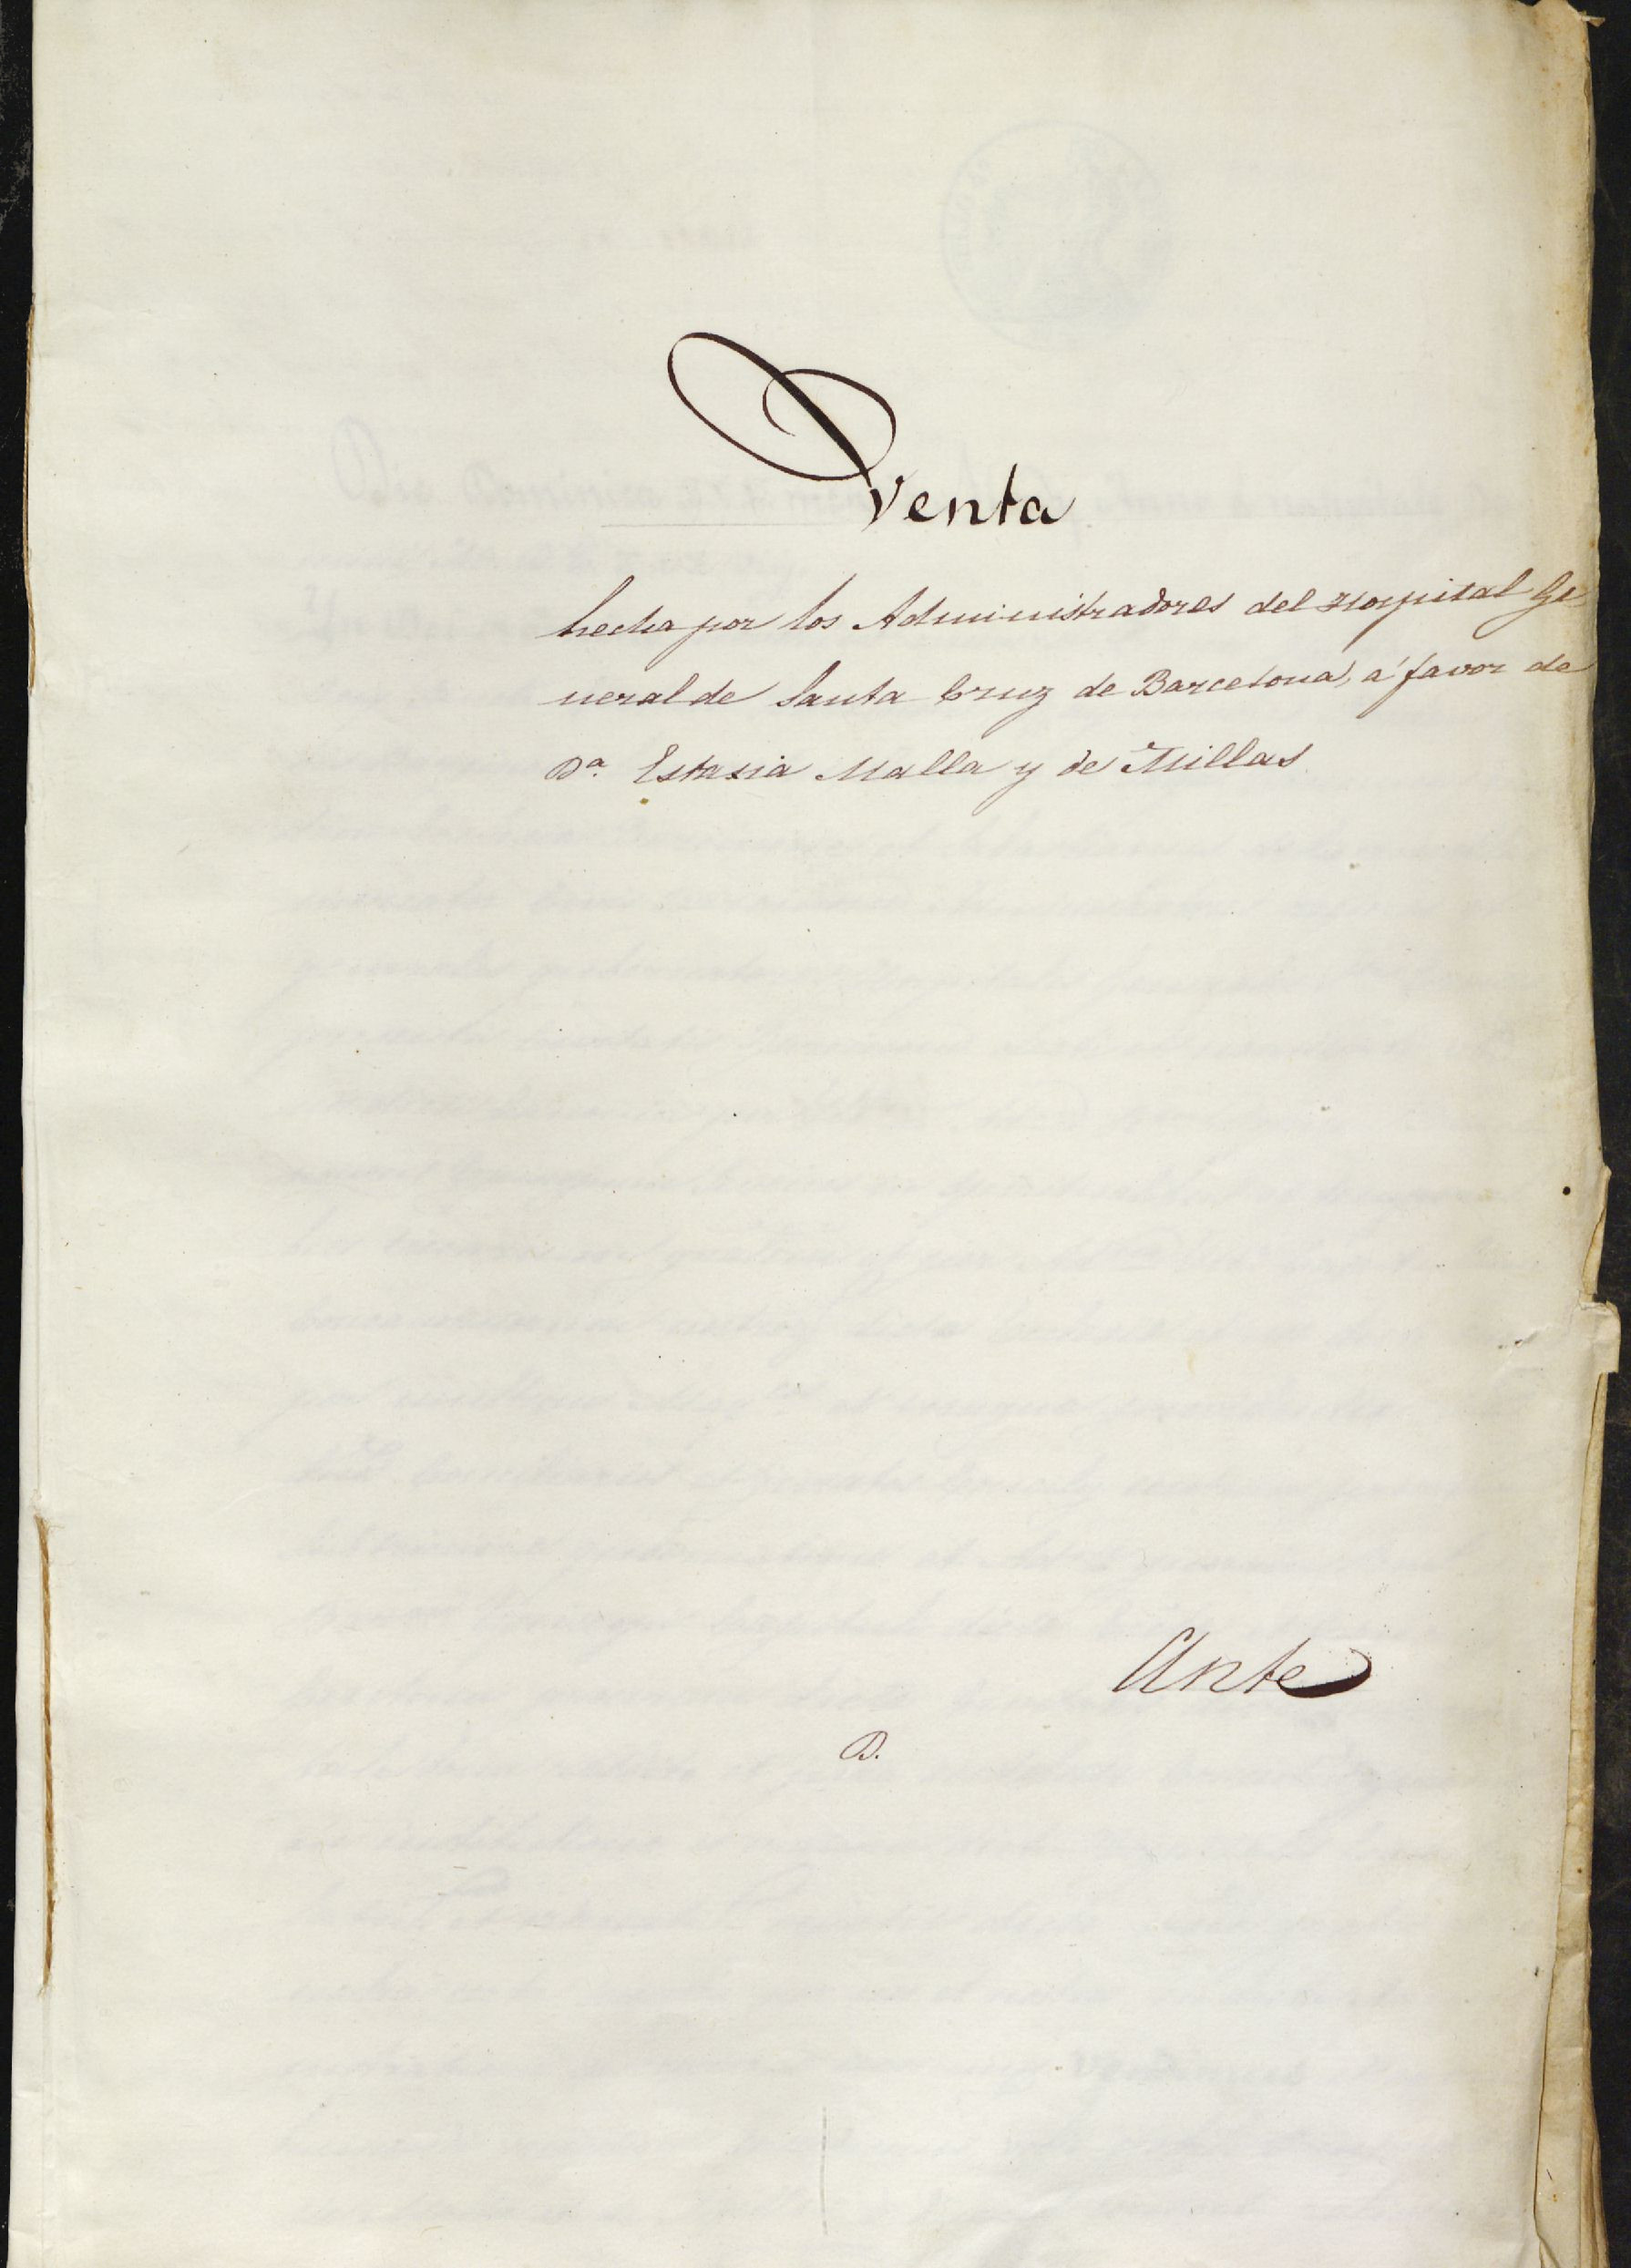 Venta
hecha por los Administradores del Hospital Ge
neral de Santa Cruz de Barcelona, á favor de
Dª. Estasia Malla y de Millas
Ante
D.